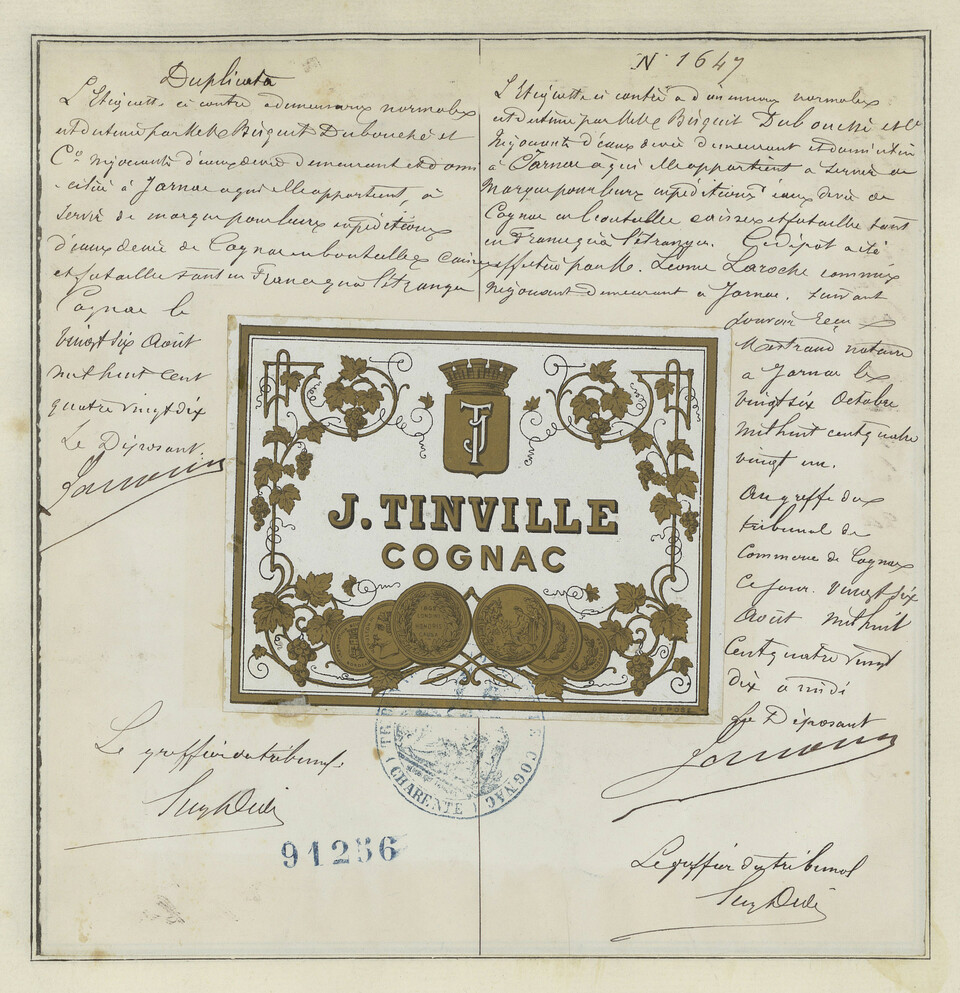 Duplicata
L'Etiquette ci contre a dimensions normales
est détenue par MM. Bisquit Dubouché et
Co négociants d'eaux de vie demeurant et domi
ciliés à Jarnac à qui elle appartient, à
servir de marque pour leurs expéditions
d'eaux de vie de Cognac en bouteilles caisses
et futaille tant en France qu'à l'étranger
Cognac le
vingt six Août
mil huit cent
quatre vingt dix
Le Déposant
N 1647
L'Etiquette ci contre a dimensions normales
est détenue par MM. Bisquit Dubouché et Co
Négociants d'eaux de vie demeurant et domiciliés
à Jarnac à qui elle appartient à servir de
Marque pour leurs expéditions eaux de vie de
Cognac en bouteille caisses et futaille tant
en France qu'à l'étranger. Ce dépôt a été
effectué par M. Léonce Laroche commis
Négociant demeurant à Jarnac. suivant
pouvoir reçu
Mestraud notaire
a Jarnac le
vingt six Octobre
mil huit cent quatre
vingt un.
Au greffe du
tribunal de
Commerce de Cognac
Ce jour. Vingt six
Août mil huit
Cent quatre vingt
dix à midi
Le Déposant
TJ
J. TINVILLE
COGNAC
DEPOSÉ
COGNAC
(CHARENTE)
Le greffier du tribunal
91256
Le greffier du tribunal